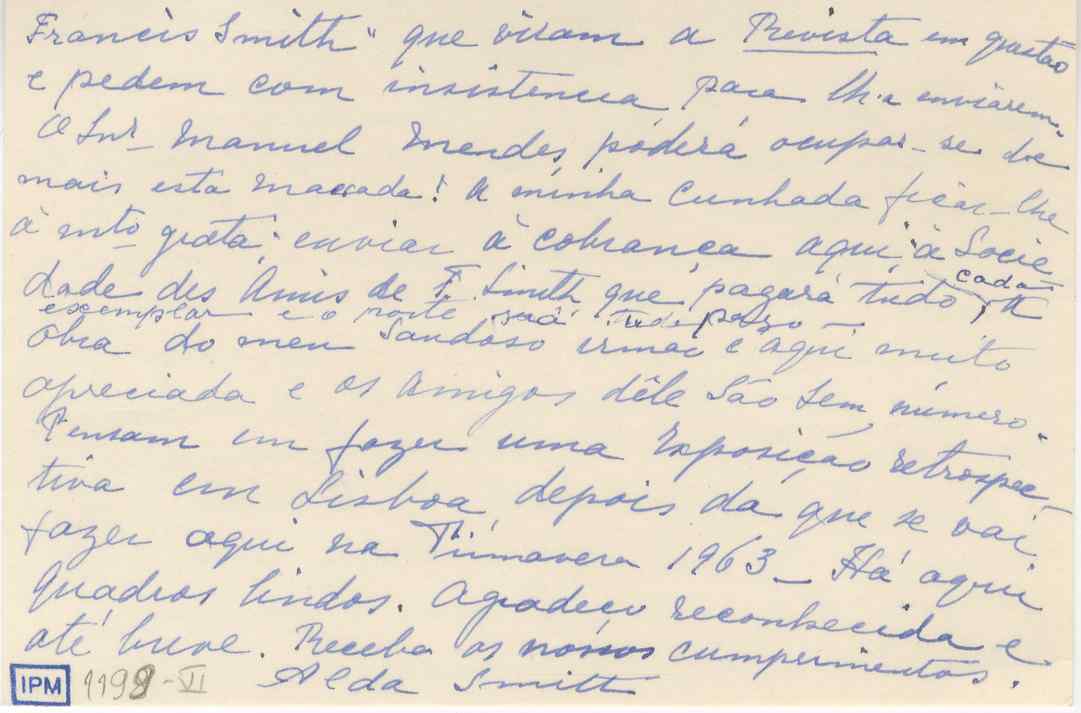 Francis Smith" que viram a Revista em gostão
e pedem com insistencia para lh-a enviárem.
O Snr_ Manuel Mendes póderá ocupar-se de
mais esta massada! A minha Cunhada ficar-lhe
á mto grata; enviar á cobrança aqui, á Socie
dade des Amis de F. Smith que pagará tudo, cada
exemplar e o porte será
A
obra do meu Saudoso irmão é aqui muito
apreciada e os amigos dêle São Sem número.
Pensam em fazer uma Exposição retrospéc
tiva em Lisboa, depois da que se vai
fazer aqui na Primavera 1963_ Há aqui
quadros lindos. Agradeço reconhecida e
até breve. Receba os nossos cumprimentos.
Alda Smith
IPM 1198-VI